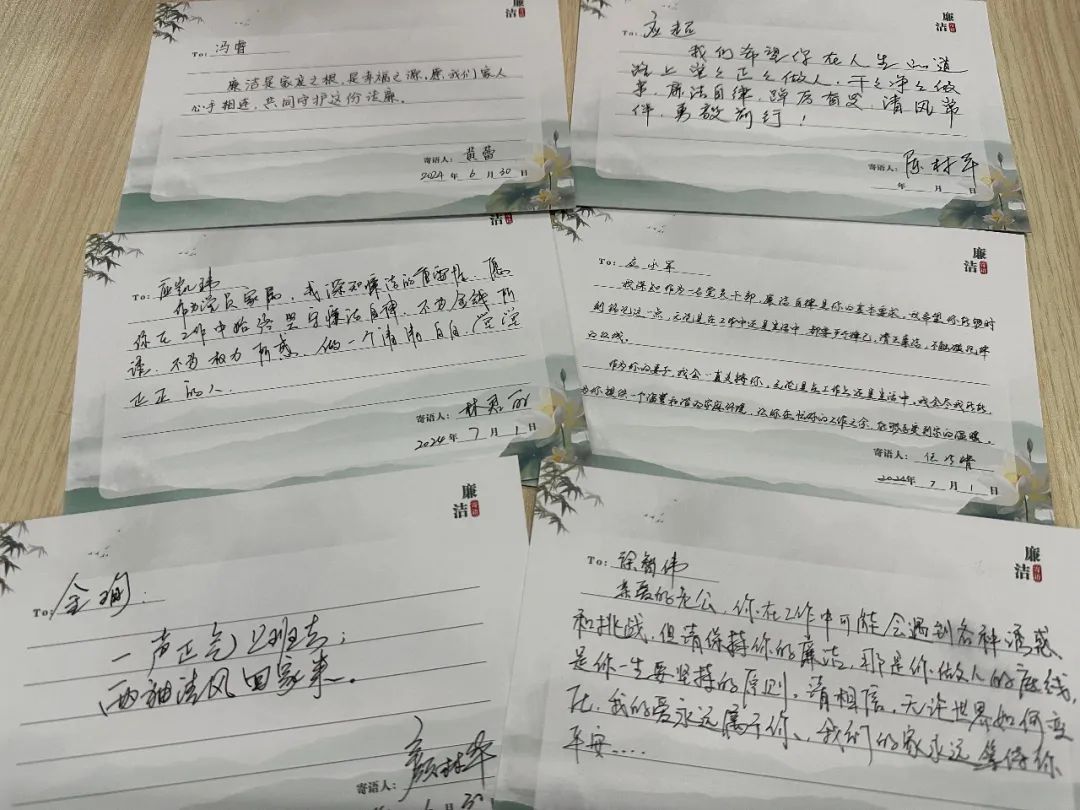 廉
洁
To: 冯睿
廉洁是家庭之根,是幸福之源,愿我们家人
心手相连,共同守护这份清廉。
寄语人: 黄蕾
2024 年 6 月 30 日
廉
洁
To: 应超
我们希望你在人生的道
路上堂堂正正做人,干干净净做
事,廉洁自律,踔厉奋发,清风常
伴,勇毅前行!
寄语人: 陈林军
年 月 日
洁
To: 应凯玮
作为党员家属,我深知廉洁的重要性,愿
你在工作中始终坚守廉洁自律,不为金钱所
诱,不为权力所惑,做一个清清白白、堂堂
正正的人。
寄语人:
2024 年 7 月 1 日
廉
洁
To: 应小军
我深知作为一名党员干部,廉洁自律是你的基本要求,我希望你能时
刻铭记这一点,无论是在工作中还是生活中,都要严于律己,清正廉洁,不触碰纪律
的红线。
作为你的妻子,我会一直支持你,无论是在工作上还是生活中,我会尽我所能,
为你提供一个温馨和谐的家庭环境,让你在忙碌的工作之余,能够感受到家的温暖。
寄语人:
2024年 7 月 1 日
廉
洁
To: 金珣:
一声正气上班去;
两袖清风回家来。
寄语人: 颜林华
6 月 30
廉
洁
To: 徐智伟
亲爱的老公,你在工作中可能会遇到各种诱惑
和挑战,但请保持你的廉洁,那是你做人的底线,
是你一生要坚持的原则。请相信,无论世界如何变
化,我的爱永远属于你、我们的家永远等待你
平安....